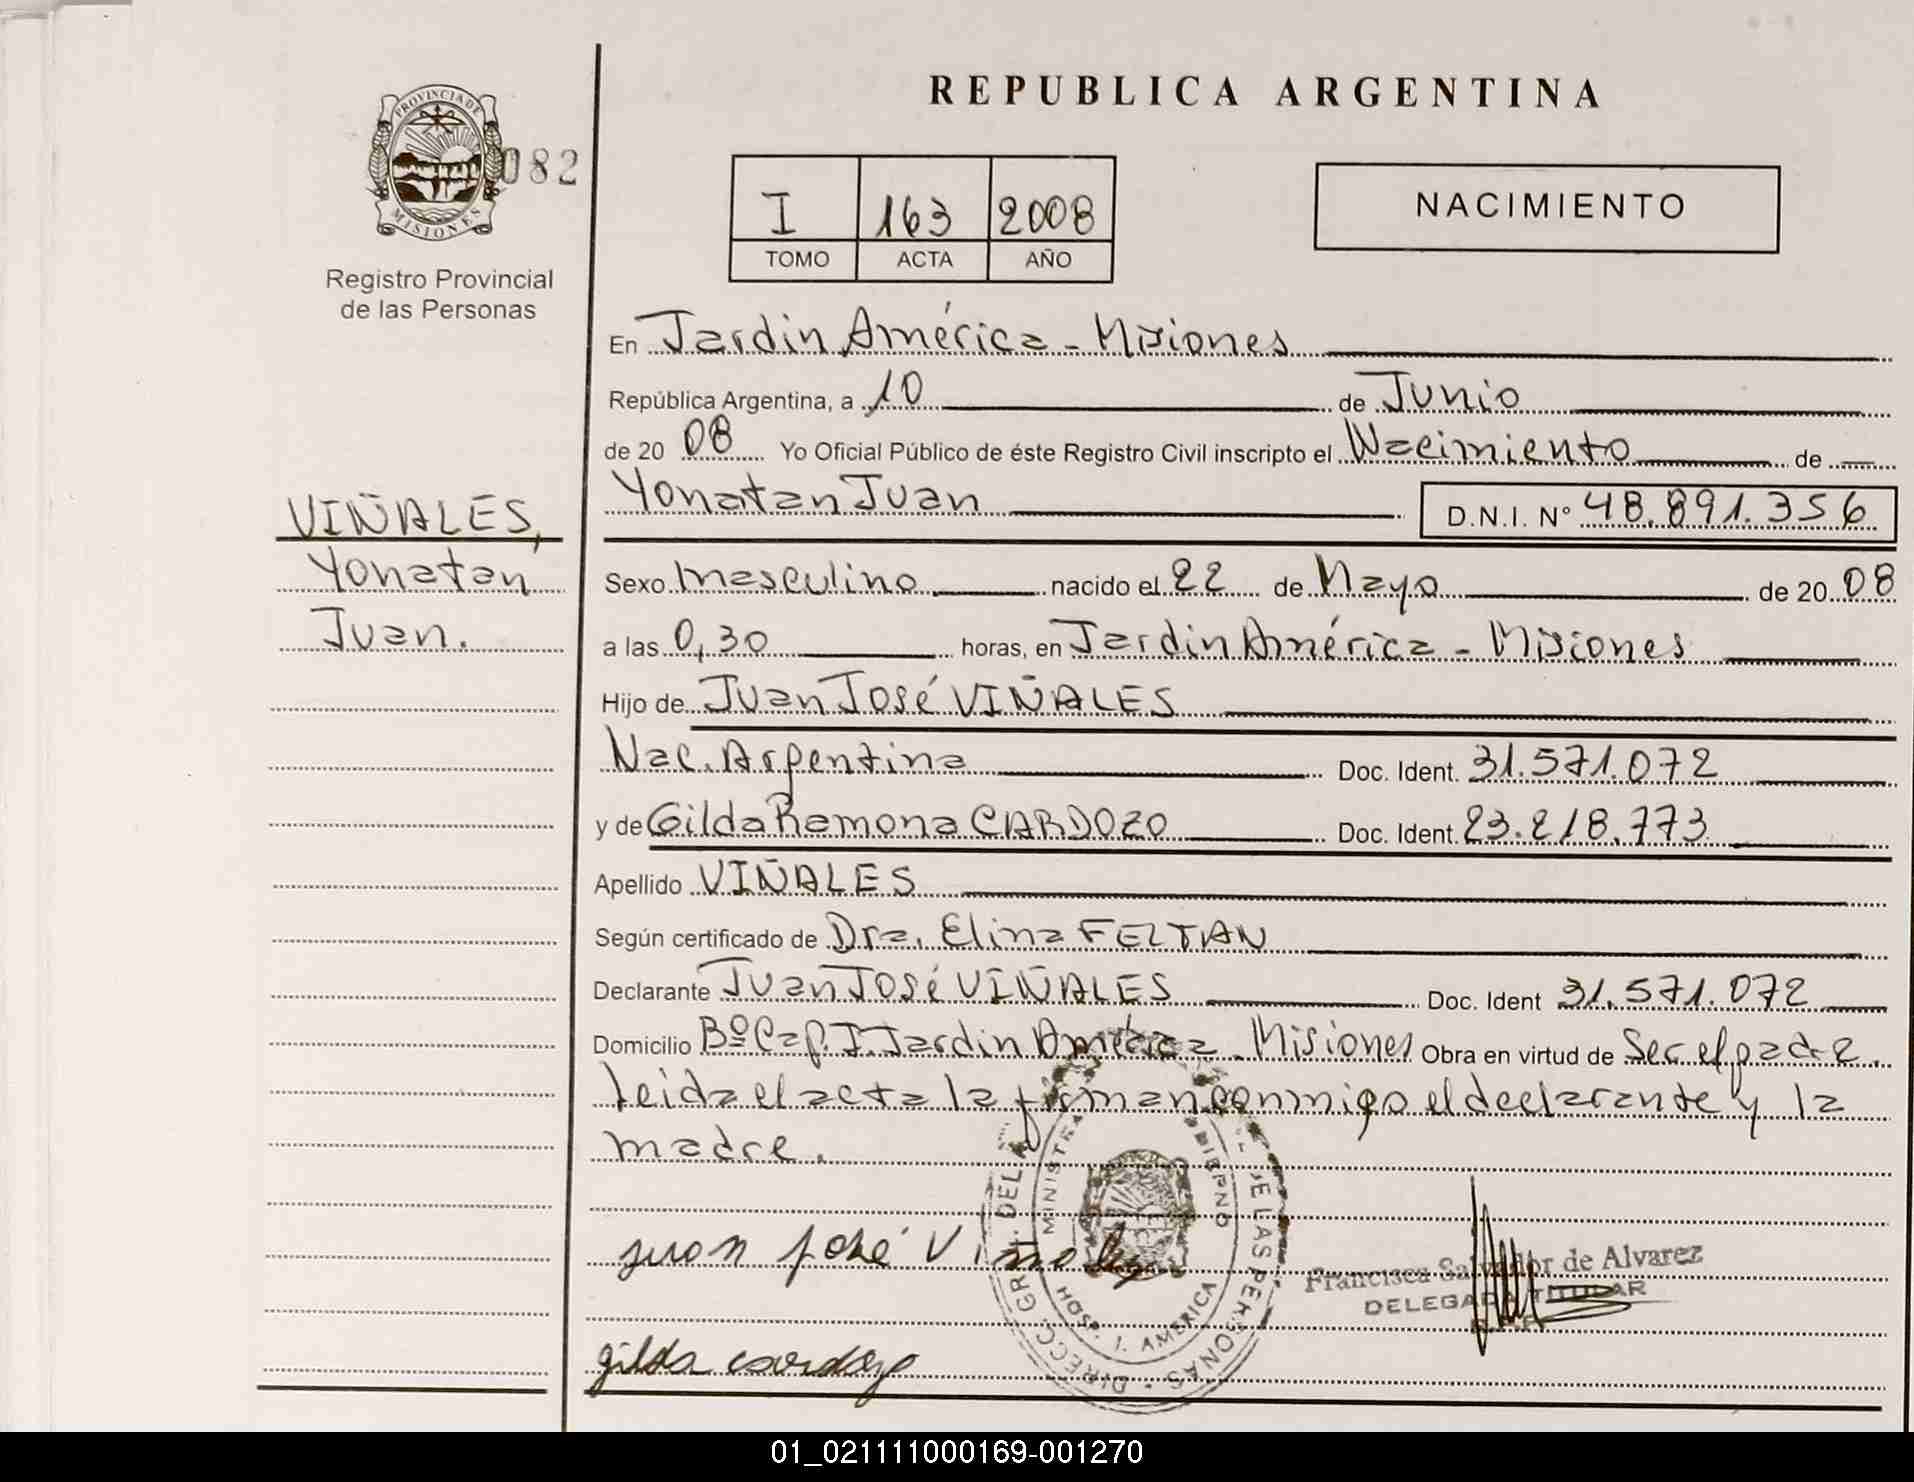 REPUBLICA ARGENTINA
PROVINCIA DE
MISIONES
082
Registro Provincial
de las Personas
I 163 2008
TOMO ACTA AÑO
NACIMIENTO
En Jardin América - Misiones
República Argentina, a 10 de Junio
de 20 08 Yo Oficial Público de éste Registro Civil inscripto el Nacimiento de
Yonatan Juan D.N.I. N° 48.891.356
VIÑALES,
Yonatan
Juan.
Sexo masculino nacido el 22 de Mayo de 20 08
a las 0,30 horas, en Jardin América - Misiones
Hijo de Juan José VIÑALES
Nac. Argentina Doc. Ident. 31.571.072
y de Gilda Ramona CARDOZO Doc. Ident. 23.218.773
Apellido VIÑALES
Según certificado de Dra. Elina FELTAN
Declarante Juan José VIÑALES Doc. Ident 31.571.072
Domicilio Bº Cap. J. Jardin América - Misiones Obra en virtud de Ser el padre.
Leida el acta la firman conmigo el declarante y la
madre.
juan josé Viñales
Francisca Salvador de Alvarez
DELEGADA TITULAR
gilda cardozo
DIRECC. GRAL. DEL DE LAS PERSONAS
HOSP. J. AMERICA
01_021111000169-001270